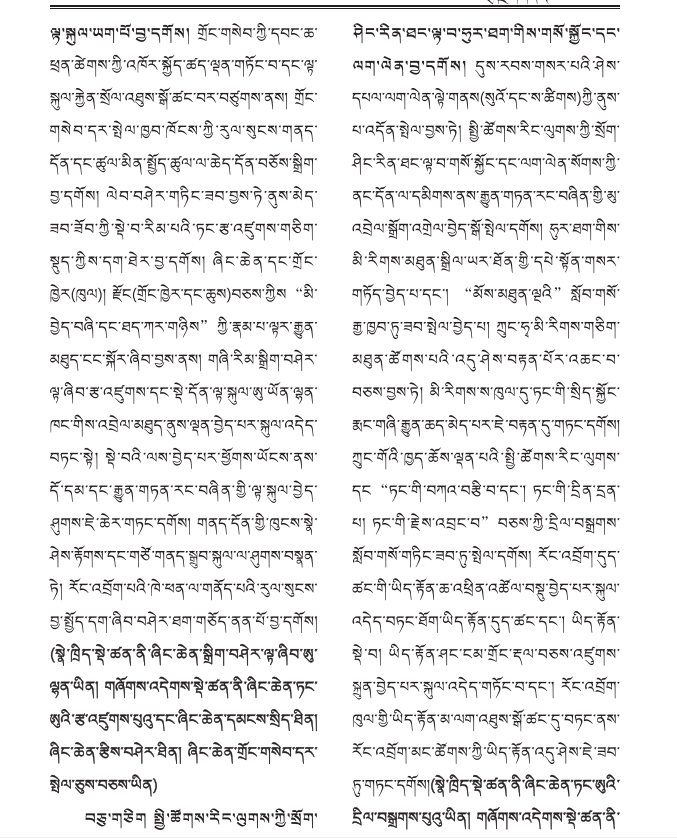 ལྟ་སྐུལ་ཡག་པོ་བྱ་དགོས། གྲོང་གསེབ་ཀྱི་དབང་ཆ་
ཕྲན་ཚེགས་ཀྱི་འཁོར་སྐྱོད་ཚད་ལྡན་གཏོང་བ་དང་ལྟ་
སྐུལ་རྐྱེན་སྲོལ་འཐུས་སྒོ་ཚང་བར་བཙུགས་ནས། གྲོང་
གསེབ་དར་སྤེལ་ཁྱབ་ཁོངས་ཀྱི་རུལ་སུངས་གནད་
དོན་དང་ཚུལ་མིན་སྤྱོད་ཚུལ་ལ་ཆེད་དོན་བཅོས་སྒྲིག་
བྱ་དགོས། ལེབ་བཤེར་གཏིང་ཟབ་བྱས་ཏེ་ནུས་མེད་
ཟབ་ཟོབ་ཀྱི་སྡེ་བ་རིམ་པའི་ཏང་རྩ་འཛུགས་གཅིག་
སྡུད་ཀྱིས་དག་ཐེར་བྱ་དགོས། ཞིང་ཆེན་དང་གྲོང་
ཁྱེར(ཁུལ)། རྫོང(གྲོང་ཁྱེར་དང་ཆུས)བཅས་ཀྱིས “མི་
བྱེད་བཞི་དང་ཐད་ཀར་གཉིས” ཀྱི་རྣམ་པ་ལྟར་རྒྱུན་
མཐུད་ངང་སྐོར་ཞིབ་བྱས་ནས། གཞི་རིམ་སྒྲིག་བཤེར་
ལྟ་ཞིབ་རྩ་འཛུགས་དང་སྡེ་དོན་ལྟ་སྐུལ་ཨུ་ཡོན་ལྷན་
ཁང་གིས་འབྲེལ་མཐུད་ནུས་ལྡན་བྱེད་པར་སྐུལ་འདེད་
བཏང་སྟེ། སྡེ་བའི་ལས་བྱེད་པར་ཕྱོགས་ཡོངས་ནས་
དོ་དམ་དང་རྒྱུན་གཏན་རང་བཞིན་གྱི་ལྟ་སྐུལ་བྱེད་
ཤུགས་ཇེ་ཆེར་གཏང་དགོས། གནད་དོན་གྱི་ཁུངས་སྣེ་
ཤེས་རྟོགས་དང་གཙོ་གནད་སྒྲུབ་སྐུལ་ལ་ཤུགས་བསྣན་
ཏེ། རོང་འབྲོག་པའི་ཁེ་ཕན་ལ་གནོད་པའི་རུལ་སུངས་
བྱ་སྤྱོད་དག་ཞིབ་བཤེར་ཐག་གཅོད་ནན་པོ་བྱ་དགོས།
(སྣེ་ཁྲིད་སྡེ་ཚན་ནི་ཞིང་ཆེན་སྒྲིག་བཤེར་ལྟ་ཞིབ་ཨུ་
ལྷན་ཡིན། གཞོགས་འདེགས་སྡེ་ཚན་ནི་ཞིང་ཆེན་ཏང་
ཨུའི་རྩ་འཛུགས་པུའུ་དང་ཞིང་ཆེན་དམངས་སྲིད་ཐིན།
ཞིང་ཆེན་རྩིས་བཤེར་ཐིན། ཞིང་ཆེན་གྲོང་གསེབ་དར་
སྤེལ་ཅུས་བཅས་ཡིན)
བཅུ་གཅིག སྤྱི་ཚོགས་རིང་ལུགས་ཀྱི་སྲོག་
ཤིང་རིན་ཐང་ལྟ་བ་ཧུར་ཐག་གིས་གསོ་སྐྱོང་དང་
ལག་ལེན་བྱ་དགོས། དུས་རབས་གསར་པའི་ཤེས་
དཔལ་ལག་ལེན་ལྟེ་གནས(སུའོ་དང་ས་ཚིགས)ཀྱི་ནུས་
པ་འདོན་སྤེལ་བྱས་ཏེ། སྤྱི་ཚོགས་རིང་ལུགས་ཀྱི་སྲོག་
ཤིང་རིན་ཐང་ལྟ་བ་གསོ་སྐྱོང་དང་ལག་ལེན་སོགས་ཀྱི་
ནང་དོན་ལ་དམིགས་ནས་རྒྱུན་གཏན་རང་བཞིན་གྱི་མུ་
འབྲེལ་སྒྲོག་འགྲེལ་བྱེད་སྒོ་སྤེལ་དགོས། ཧུར་ཐག་གིས་
མི་རིགས་མཐུན་སྒྲིལ་ཡར་ཐོན་གྱི་དཔེ་སྟོན་གསར་
གཏོད་བྱེད་པ་དང་། “མོས་མཐུན་ལྔའི” སློབ་གསོ་
རྒྱ་ཁྱབ་ཏུ་ཟབ་སྤེལ་བྱེད་པ། ཀྲུང་ཧྭ་མི་རིགས་གཅིག་
མཐུན་ཚོགས་པའི་འདུ་ཤེས་བརྟན་པོར་འཆང་བ་
བཅས་བྱས་ཏེ། མི་རིགས་ས་ཁུལ་དུ་ཏང་གི་སྲིད་སྐྱོང་
རྨང་གཞི་རྒྱུན་ཆད་མེད་པར་ཇེ་བརྟན་དུ་གཏང་དགོས།
ཀྲུང་གོའི་ཁྱད་ཆོས་ལྡན་པའི་སྤྱི་ཚོགས་རིང་ལུགས་
དང “ཏང་གི་བཀའ་བརྩི་བ་དང་། ཏང་གི་དྲིན་དྲན་
པ། ཏང་གི་རྗེས་འབྲང་བ” བཅས་ཀྱི་དྲིལ་བསྒྲགས་
སློབ་གསོ་གཏིང་ཟབ་ཏུ་སྤེལ་དགོས། རོང་འབྲོག་དུད་
ཚང་གི་ཡིད་རྟོན་ཆ་འཕྲིན་འཚོལ་བསྡུ་བྱེད་པར་སྐུལ་
འདེད་བཏང་ཐོག་ཡིད་རྟོན་དུད་ཚང་དང་། ཡིད་རྟོན་
སྡེ་བ། ཡིད་རྟོན་ཤང་ངམ་གྲོང་རྡལ་བཅས་འཛུགས་
སྐྲུན་བྱེད་པར་སྐུལ་འདེད་གཏོང་བ་དང་། རོང་འབྲོག་
ཁུལ་གྱི་ཡིད་རྟོན་མ་ལག་འཐུས་སྒོ་ཚང་དུ་བཏང་ནས་
རོང་འབྲོག་མང་ཚོགས་ཀྱི་ཡིད་རྟོན་འདུ་ཤེས་ཇེ་ཟབ་
ཏུ་གཏང་དགོས།(སྣེ་ཁྲིད་སྡེ་ཚན་ནི་ཞིང་ཆེན་ཏང་ཨུའི་
དྲིལ་བསྒྲགས་པུའུ་ཡིན། གཞོགས་འདེགས་སྡེ་ཚན་ནི་